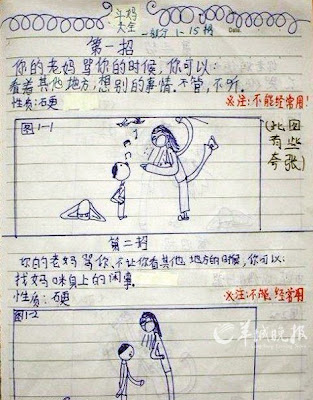 斗妈
大全
一部分 1-15招
Date.
第一招
你的老妈骂你的时候,你可以:
看着其他地方,想别的事情.不管,不听.
性质:石更
※注:不能经常用!
图1-1
(此图有些夸张)
第二招
你的老妈骂你,不让你看其他地方的时候,你可以:
找妈咪身上的闲
性质:石更
※注:不能经常用
图1-2
羊城晚报